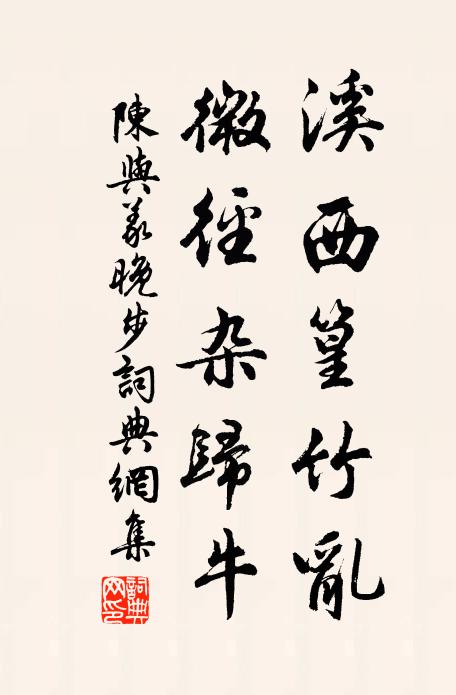 溪西篁竹亂
微徑杂歸牛
陳與義晚步詞典網集
詞典網印